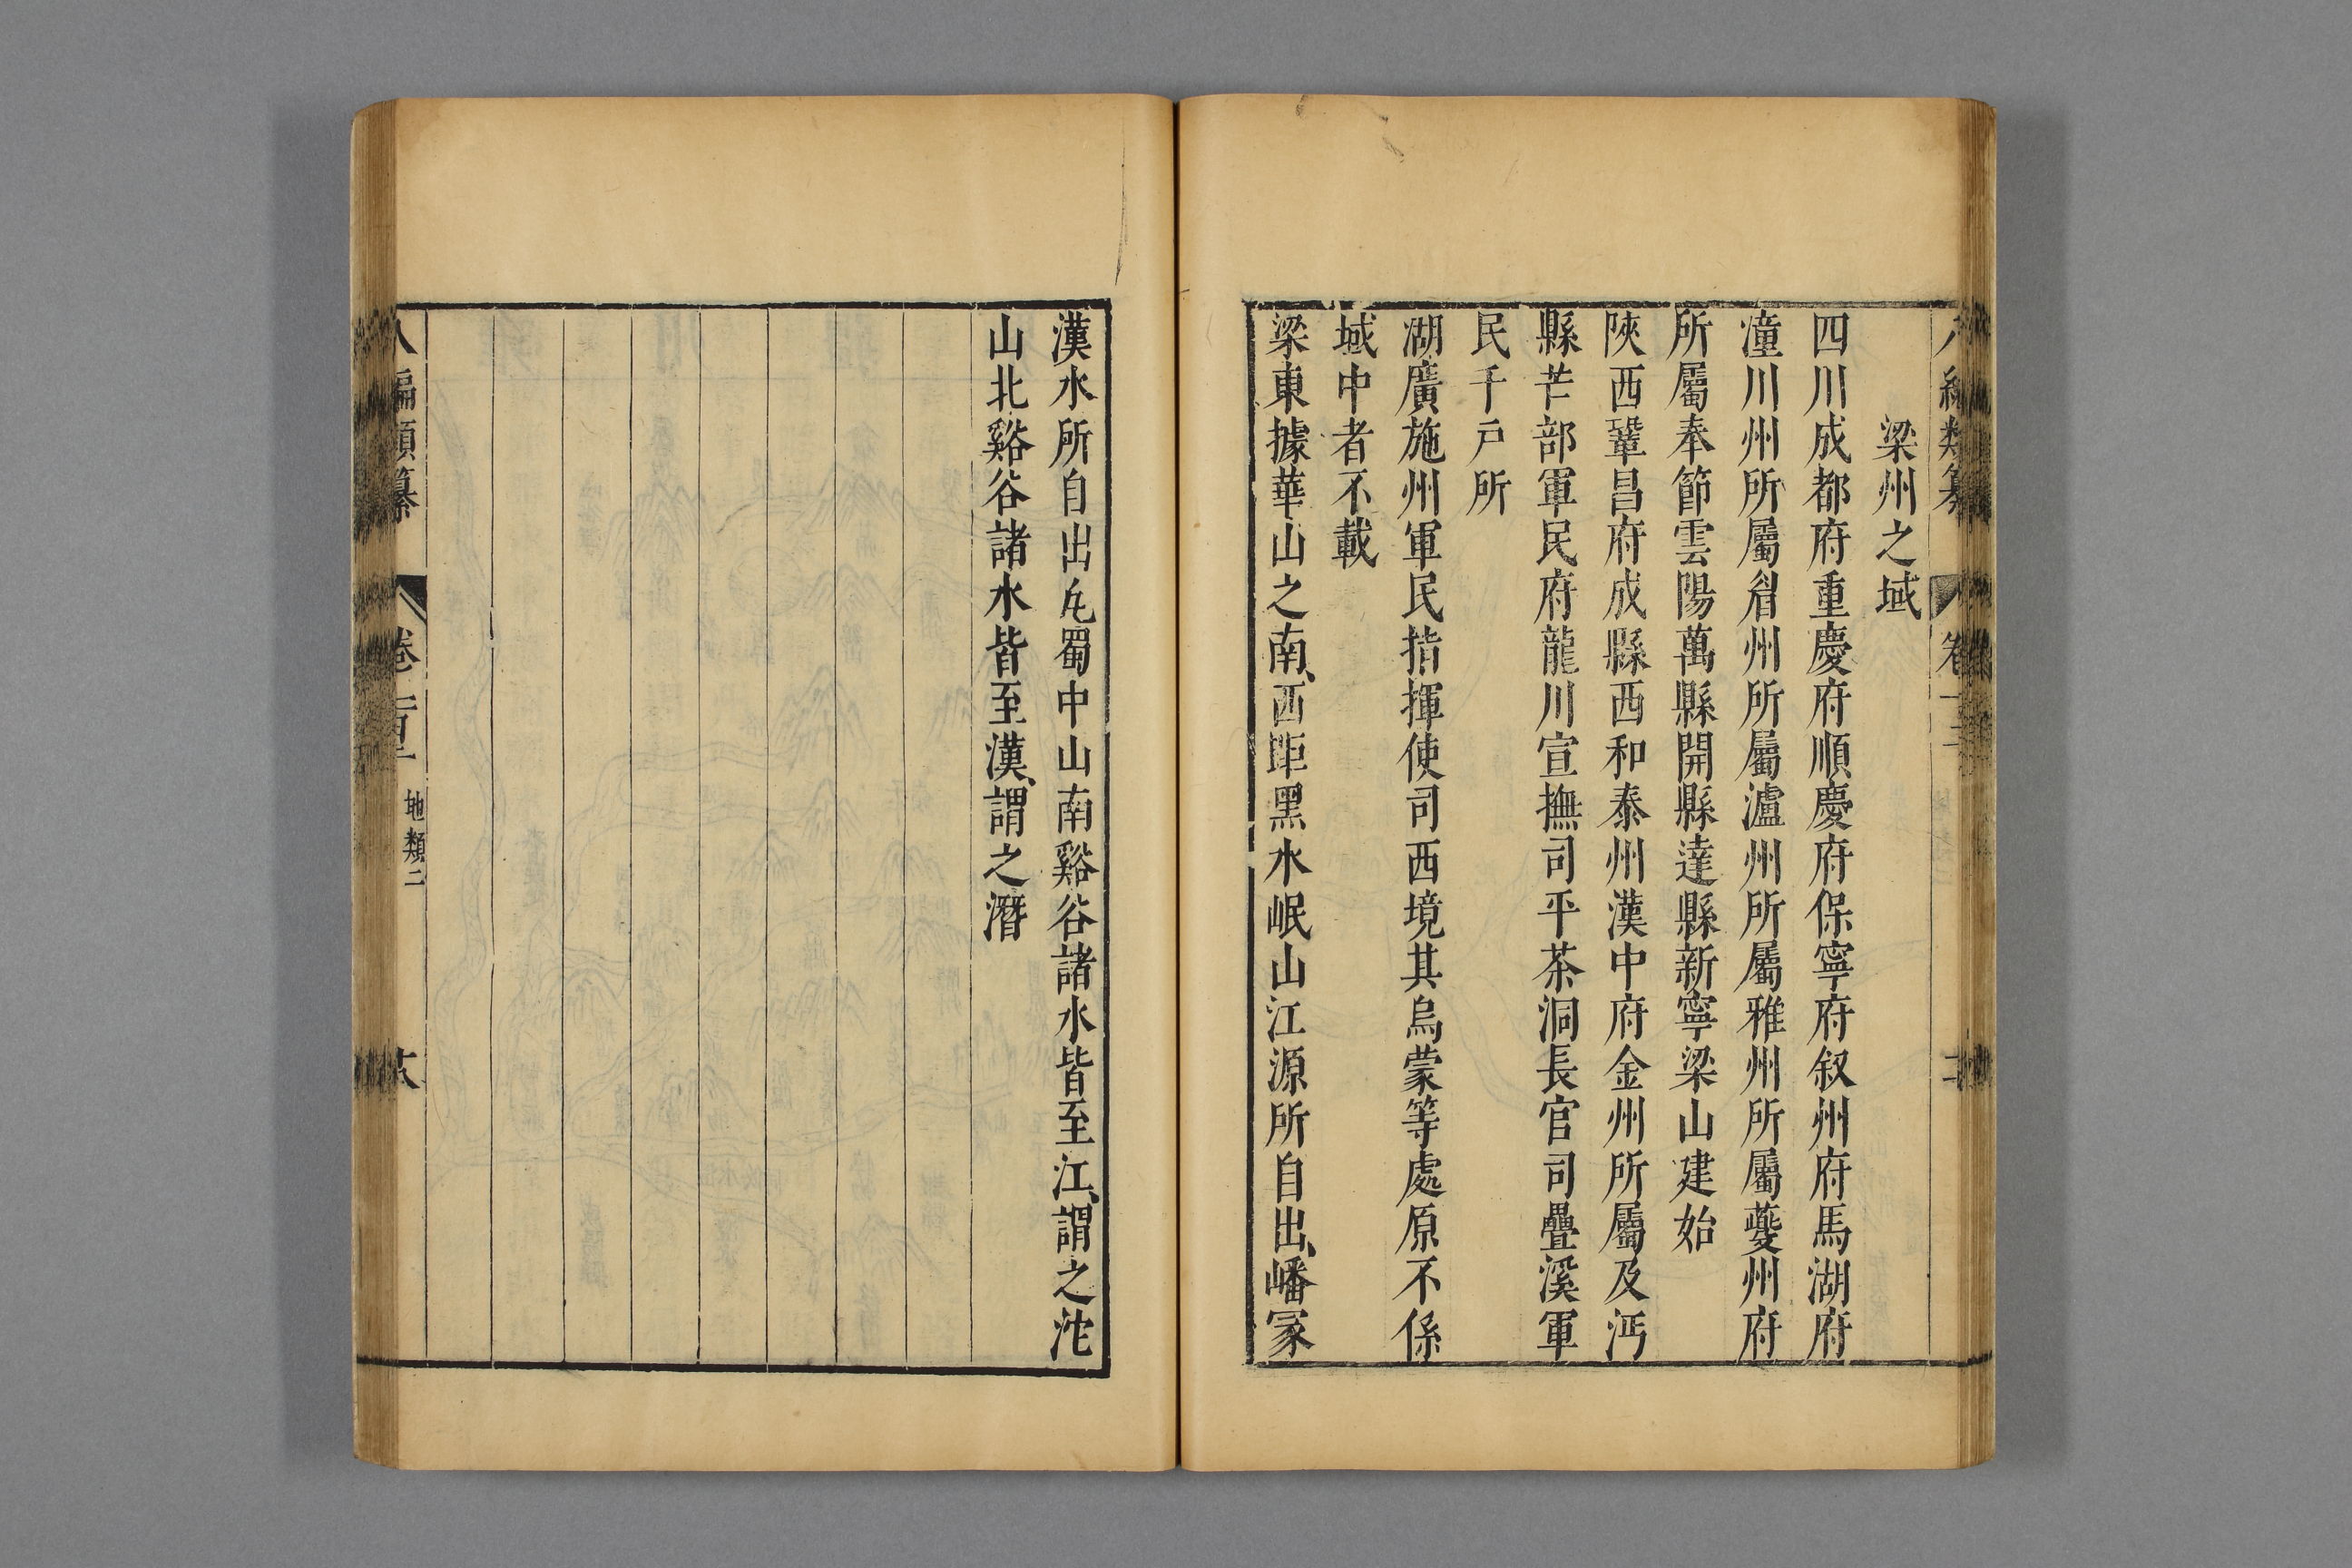 梁州之域
四川成都府重慶府順慶府保寧府叙州府馬湖府
潼川州所屬眉州所屬瀘州所屬雅州所屬夔州府
所屬奉節雲陽萬縣開縣達縣新寧梁山建始
陝西鞏昌府成縣西和泰州漢中府金州所屬及沔
縣芒部軍民府龍川宣撫司平茶洞長官司疊溪軍
民千戸所
湖廣施州軍民指揮使司西境其烏蒙等處原不係
域中者不載
梁東據華山之南、西距黑水岷山江源所自出、嶓冢
漢水所自出凡蜀中山南谿谷諸水皆至江、謂之沱
山北谿谷諸水皆至漢、謂之潛
八編類纂 卷一百一 地類二